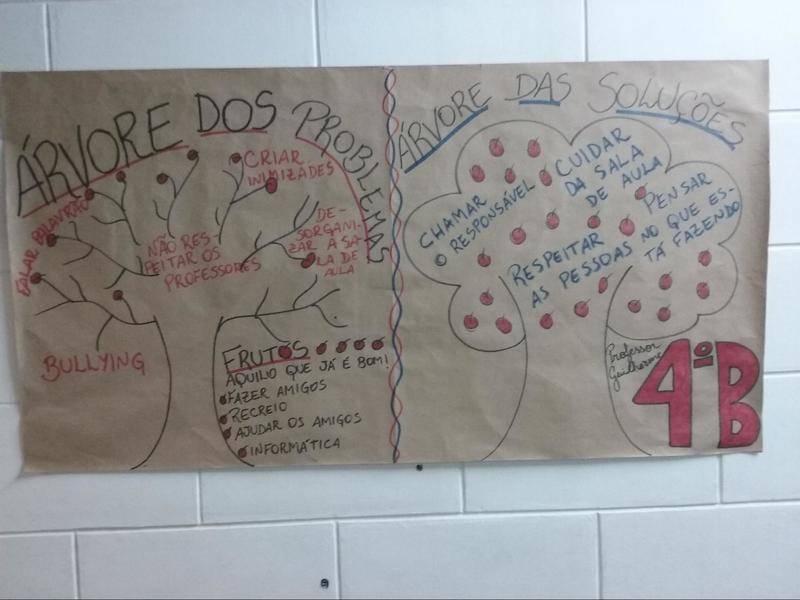 ÁRVORE DOS PROBLEMAS
CRIAR
INIMIZADES
FALAR PALAVRÃO
NÃO RES-
PEITAR OS
PROFESSORES
DE-
SORGANI-
ZAR A SA-
LA DE
AULA
BULLYING
FRUTOS
AQUILO QUE JÁ É BOM!
FAZER AMIGOS
RECREIO
AJUDAR OS AMIGOS
INFORMÁTICA
ÁRVORE DAS SOLUÇÕES
CHAMAR
O RESPONSÁVEL
CUIDAR
DA SALA
DE AULA
RESPEITAR
AS PESSOAS
PENSAR
NO QUE ES-
TÁ FAZENDO
Professor
Guilherme
4º B